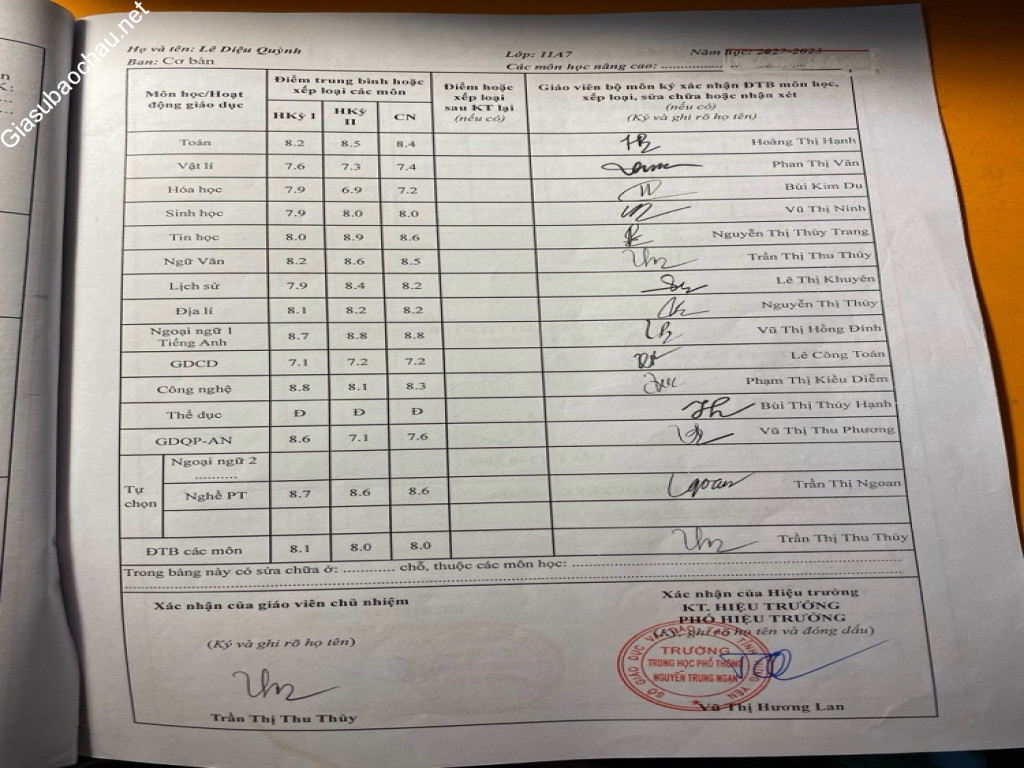 Giasubaochau.net
Họ và tên: Lê Diệu Quỳnh
Lớp: 11A7
Năm học: 2022-2023
Ban: Cơ bản
Các môn học nâng cao: ................
Môn học/Hoạt động giáo dục
Điểm trung bình hoặc xếp loại các môn
HKỳ I
HKỳ II
CN
Điểm hoặc xếp loại sau KT lại (nếu có)
Giáo viên bộ môn ký xác nhận ĐTB môn học, xếp loại, sửa chữa hoặc nhận xét (nếu có)
(Ký và ghi rõ họ tên)
Toán 8.2 8.5 8.4 Hoàng Thị Hạnh
Vật lí 7.6 7.3 7.4 Phan Thị Vân
Hóa học 7.9 6.9 7.2 Bùi Kim Du
Sinh học 7.9 8.0 8.0 Vũ Thị Ninh
Tin học 8.0 8.9 8.6 Nguyễn Thị Thùy Trang
Ngữ Văn 8.2 8.6 8.5 Trần Thị Thu Thủy
Lịch sử 7.9 8.4 8.2 Lê Thị Khuyên
Địa lí 8.1 8.2 8.2 Nguyễn Thị Thúy
Ngoại ngữ 1 Tiếng Anh 8.7 8.8 8.8 Vũ Thị Hồng Đính
GDCD 7.1 7.2 7.2 Lê Công Toán
Công nghệ 8.8 8.1 8.3 Phạm Thị Kiều Diễm
Thể dục Đ Đ Đ Bùi Thị Thúy Hạnh
GDQP-AN 8.6 7.1 7.6 Vũ Thị Thu Phương
Tự chọn
Ngoại ngữ 2 ..........
Nghề PT 8.7 8.6 8.6 Ngoan Trần Thị Ngoan
ĐTB các môn 8.1 8.0 8.0 Trần Thị Thu Thủy
Trong bảng này có sửa chữa ở: ............ chỗ, thuộc các môn học: ................
Xác nhận của giáo viên chủ nhiệm
(Ký và ghi rõ họ tên)
Trần Thị Thu Thủy
Xác nhận của Hiệu trưởng
KT. HIỆU TRƯỞNG
PHÓ HIỆU TRƯỞNG
(Ký, ghi rõ họ tên và đóng dấu)
TRƯỜNG
TRUNG HỌC PHỔ THÔNG
NGUYỄN TRUNG NGẠN
Vũ Thị Hương Lan